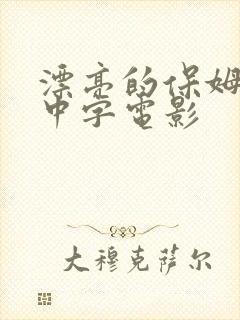 漂亮的保姆
中字电影
大穆克萨尔